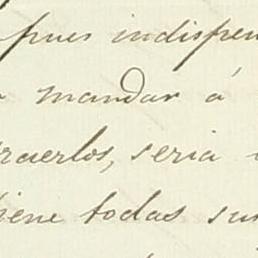 pues indispen
mandar á
raerlos, seria
iene todas su